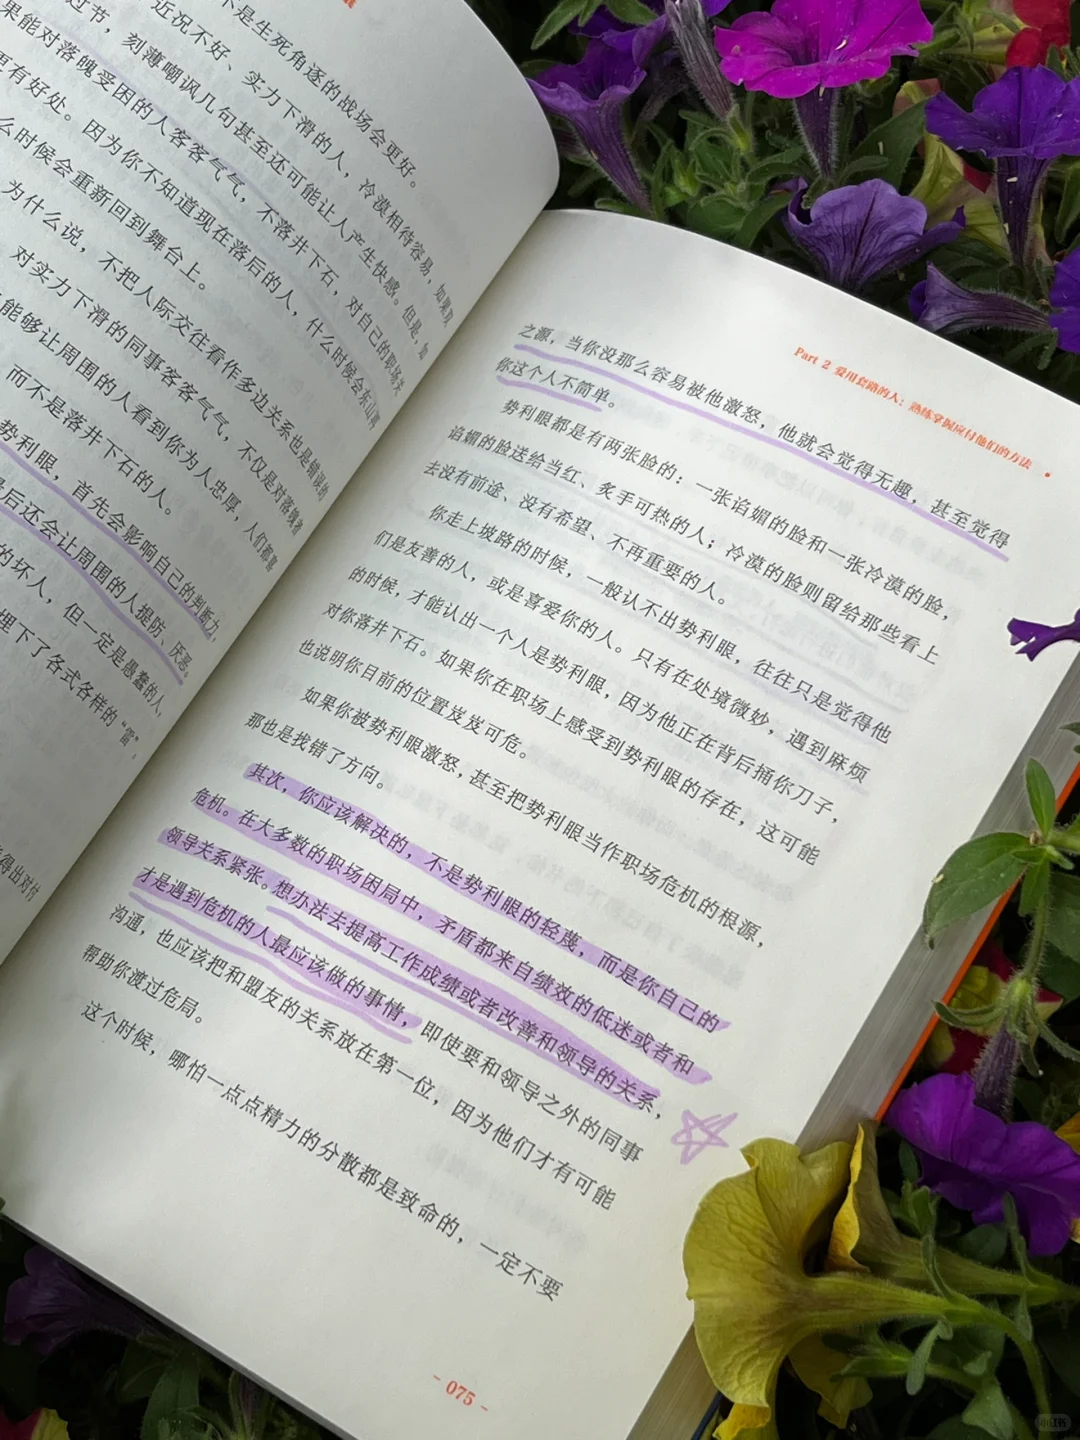 不是生死角逐的战场会更好。
近况不好、实力下滑的人，冷漠相待容易，如果再
过节，刻薄嘲讽几句甚至还可能让人产生快感。但是，如
果能对落魄受困的人客客气气，不落井下石，对自己的职场关
更有好处。因为你不知道现在落后的人，什么时候会东山再
么时候会重新回到舞台上。
为什么说，不把人际交往看作多边关系也是错误的
对实力下滑的同事客客气气，不仅是对落魄者
能够让周围的人看到你为人忠厚，人们都喜
而不是落井下石的人。
势利眼，首先会影响自己的判断力，
最后还会让周围的人提防、厌恶。
的坏人，但一定是愚蠢的人，
埋下了各式各样的“雷”。
得出对付
Part 2 爱用套路的人：熟练掌握应付他们的方法
之源，当你没那么容易被他激怒，他就会觉得无趣，甚至觉得
你这个人不简单。
势利眼都是有两张脸的：一张谄媚的脸和一张冷漠的脸，
谄媚的脸送给当红、炙手可热的人；冷漠的脸则留给那些看上
去没有前途、没有希望、不再重要的人。
你走上坡路的时候，一般认不出势利眼，往往只是觉得他
们是友善的人，或是喜爱你的人。只有在处境微妙，遇到麻烦
的时候，才能认出一个人是势利眼，因为他正在背后捅你刀子，
对你落井下石。如果你在职场上感受到势利眼的存在，这可能
也说明你目前的位置岌岌可危。
如果你被势利眼激怒，甚至把势利眼当作职场危机的根源，
那也是找错了方向。
其次，你应该解决的，不是势利眼的轻蔑，而是你自己的
危机。在大多数的职场困局中，矛盾都来自绩效的低迷或者和
领导关系紧张。想办法去提高工作成绩或者改善和领导的关系，
才是遇到危机的人最应该做的事情，即使要和领导之外的同事
沟通，也应该把和盟友的关系放在第一位，因为他们才有可能
帮助你渡过危局。
这个时候，哪怕一点点精力的分散都是致命的，一定不要
- 075 -
小红书